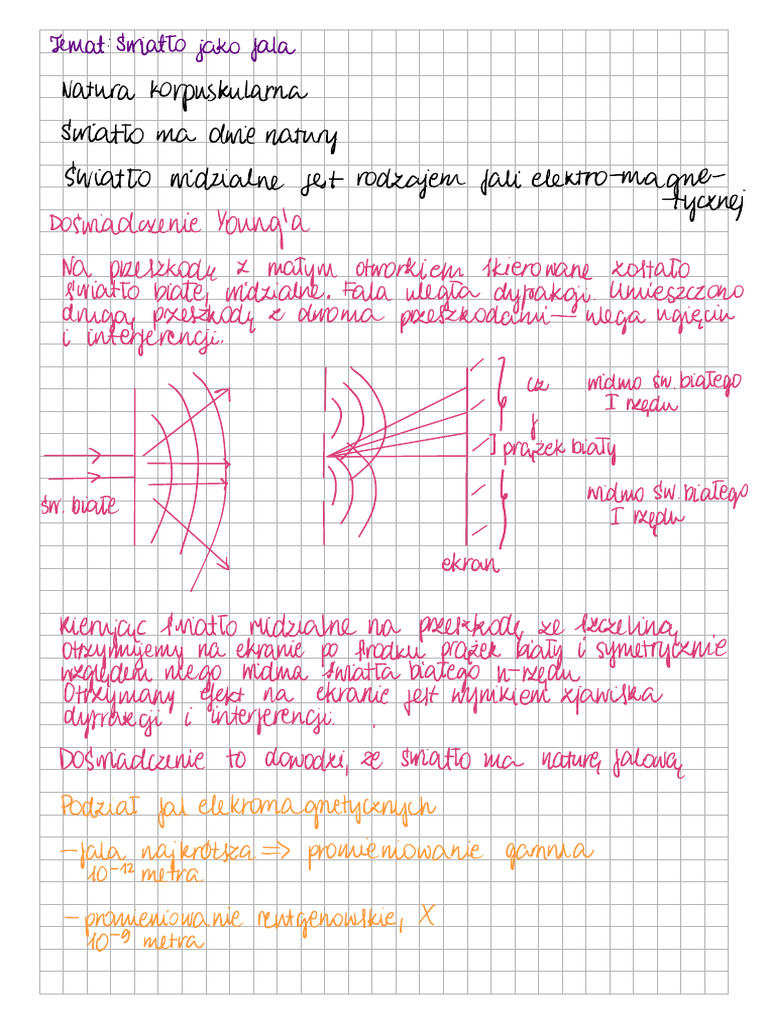 Temat: Światło jako fala
Natura korpuskularna
Światło ma dwie natury
Światło widzialne jest rodzajem fali elektro-magne-
tycznej
Doświadczenie Young'a
Na przeszkodę z małym otworkiem skierowane zostało
światło białe, widzialne. Fala uległa dyfrakcji. Umieszczono
drugą przeszkodę z dwoma przeszkodami – ulega ugięciu
i interferencji.
cz
widmo św. białego
I rzędu
f
prążek biały
św. białe
widmo św. białego
I rzędu
ekran
Kierując światło widzialne na przeszkodę ze szczeliną,
otrzymujemy na ekranie po środku prążek biały i symetrycznie
względem niego widma światła białego n-rzędu
Otrzymany efekt na ekranie jest wynikiem zjawiska
dyfrakcji i interferencji.
Doświadczenie to dowodzi, że światło ma naturę falową
Podział fal elekromagnetycznych
– fala najkrótsza => promieniowanie gamma
10⁻¹² metra
– promieniowanie rentgenowskie, X
10⁻⁹ metra